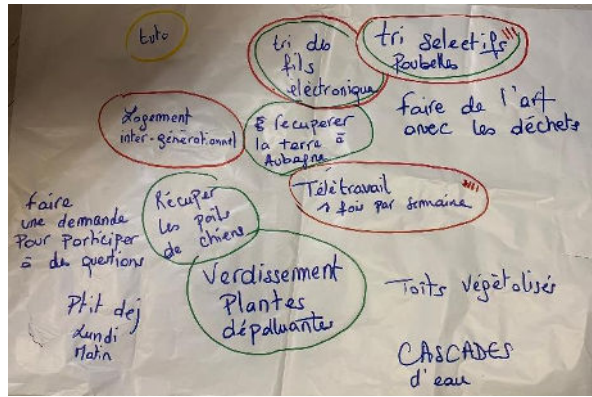 tuto
tri des
fils
électronique
tri Selectifs
Poubelles
Logement
inter-générationnel
récuperer
la terre à
Aubagne
faire de l'art
avec les déchets
Télétravail
1 fois par semaine
faire
une demande
Pour participer
à des questions
Récuper
les poils
de chiens
Verdissement
Plantes
dépolluantes
Toits végétalisés
Ptit dej
Lundi
Matin
CASCADES
d'eau